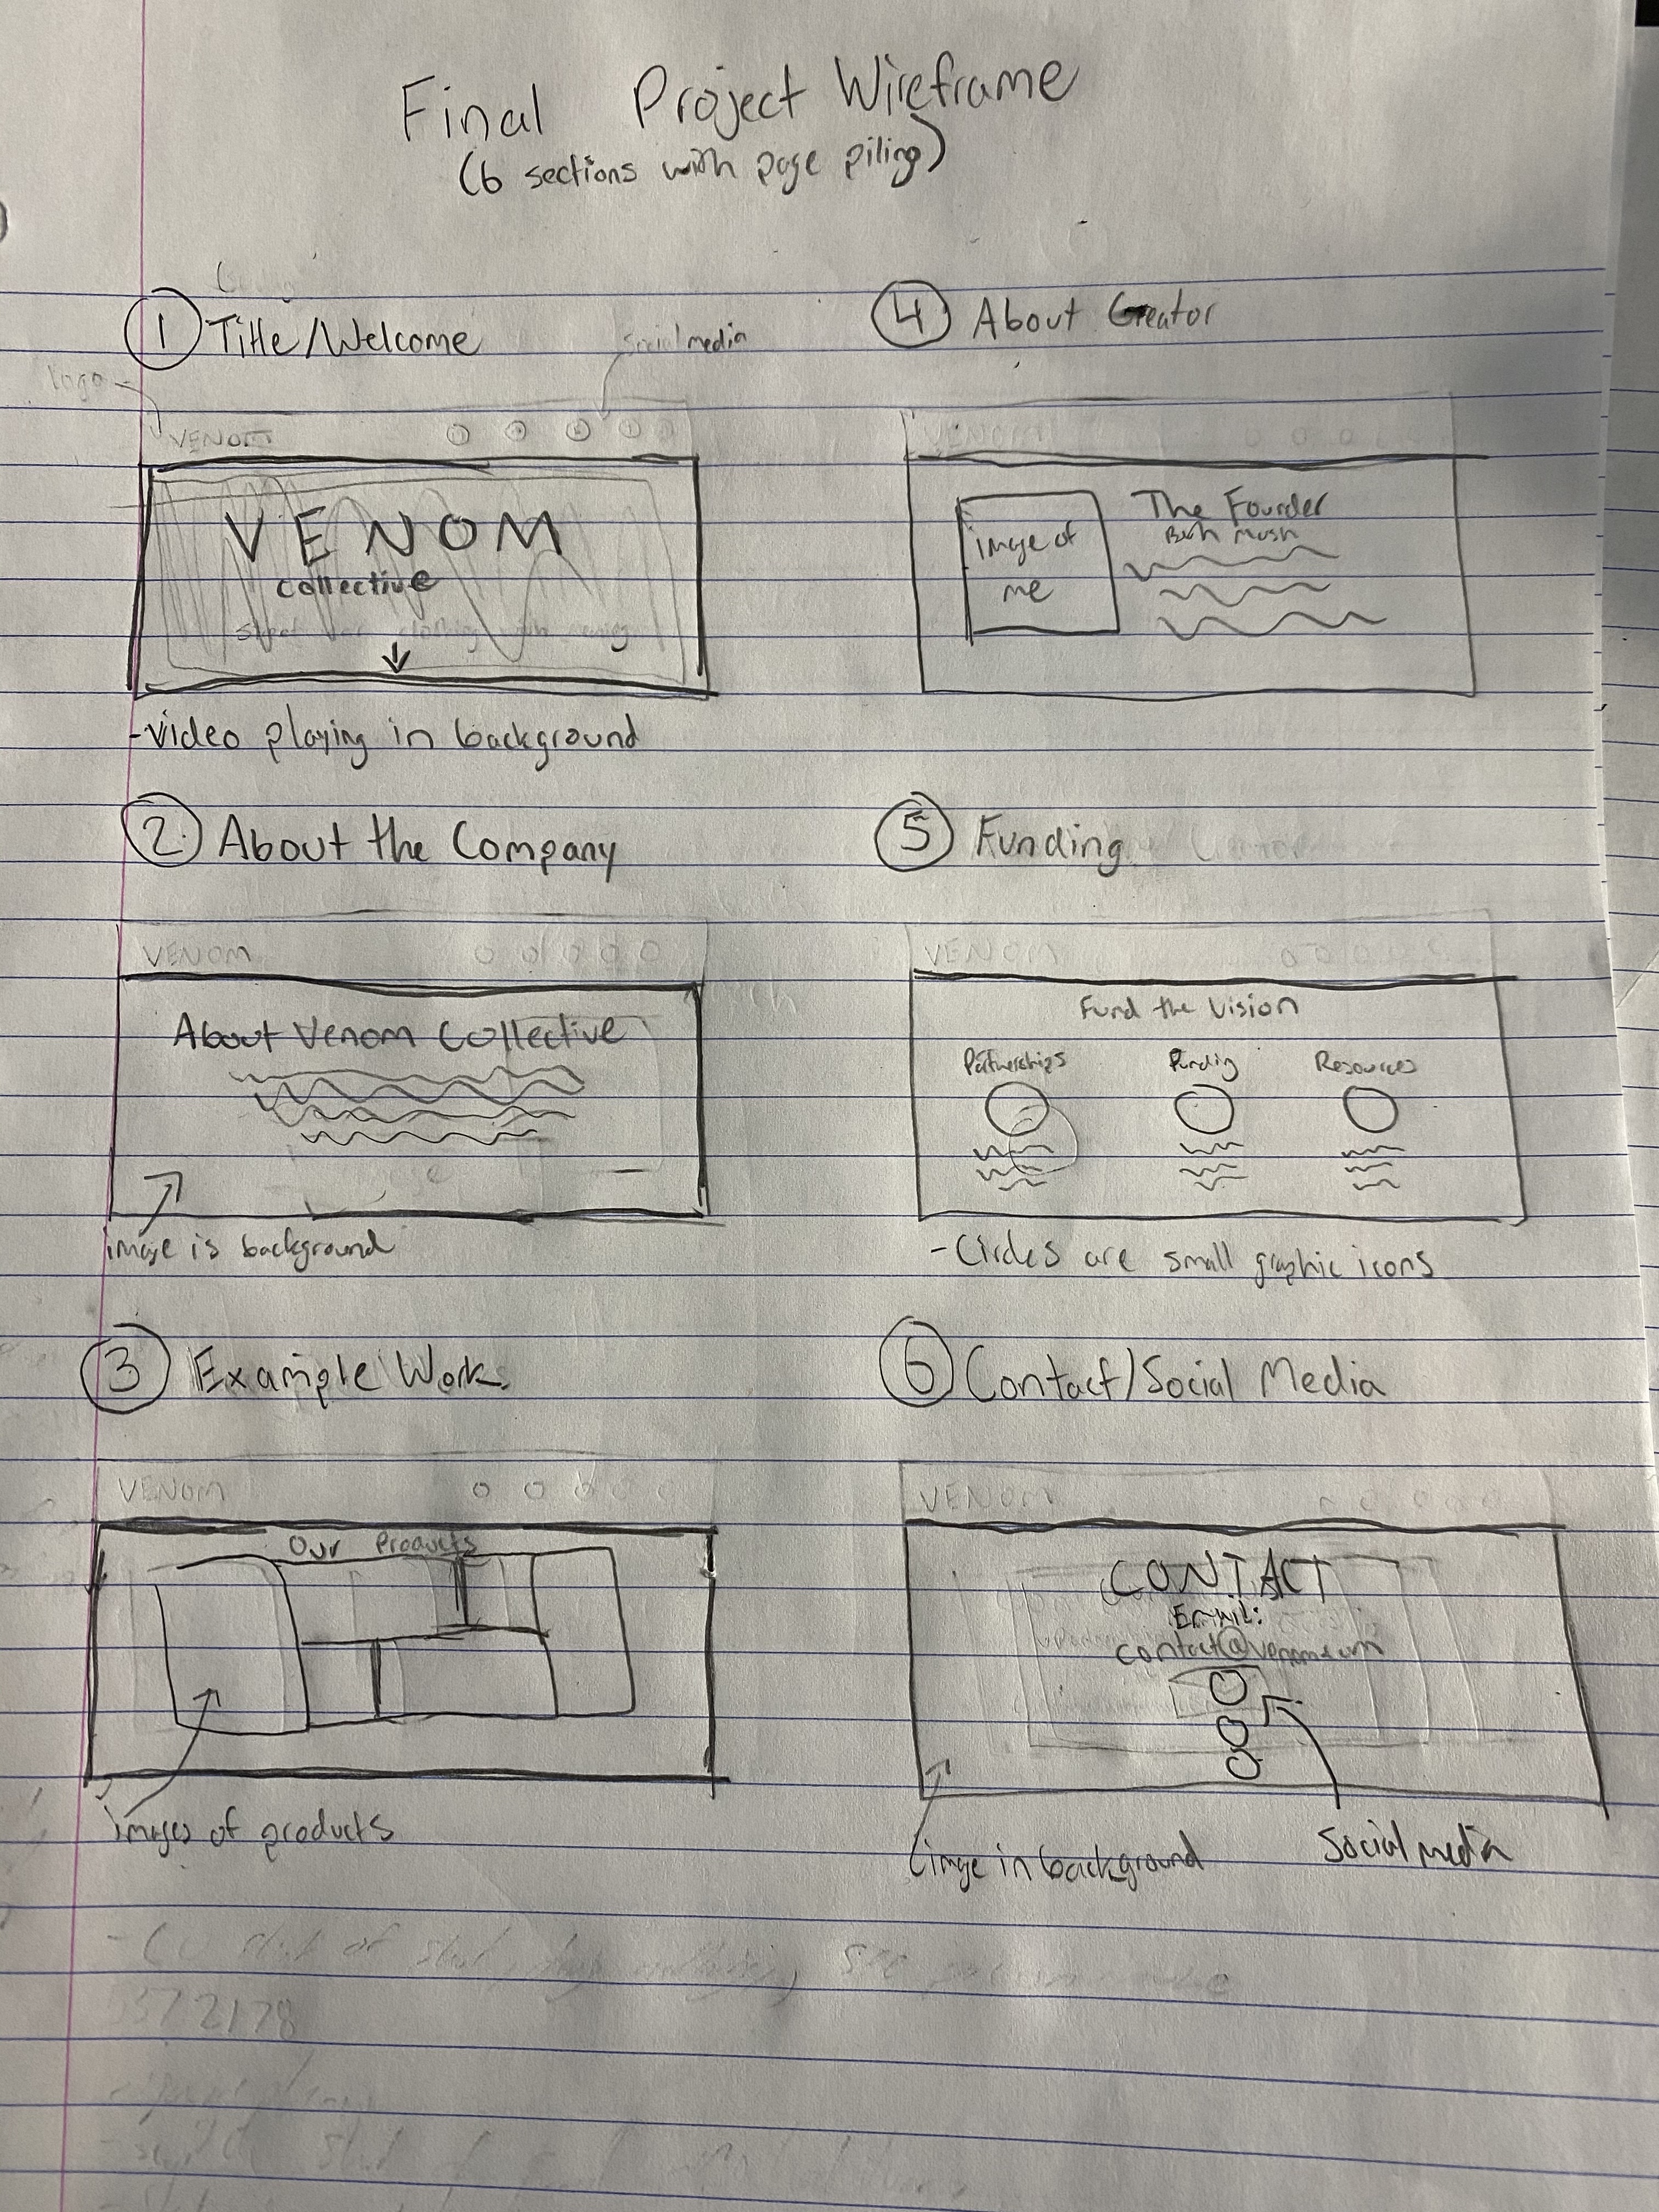 Final Project Wireframe
(6 sections with page piling)
1 Title/Welcome
logo
social media
VENOM
VENOM
collective
clothing
-video playing in background
2 About the Company
VENOM
About Venom Collective
image is background
3 Example Work
VENOM
Our Products
images of products
4 About Creator
VENOM
image of
me
The Founder
5 Funding
VENOM
Fund the Vision
Partnerships Funding Resources
-Circles are small graphic icons
6 Contact/Social Media
VENOM
CONTACT
Email:
image in background
Social media